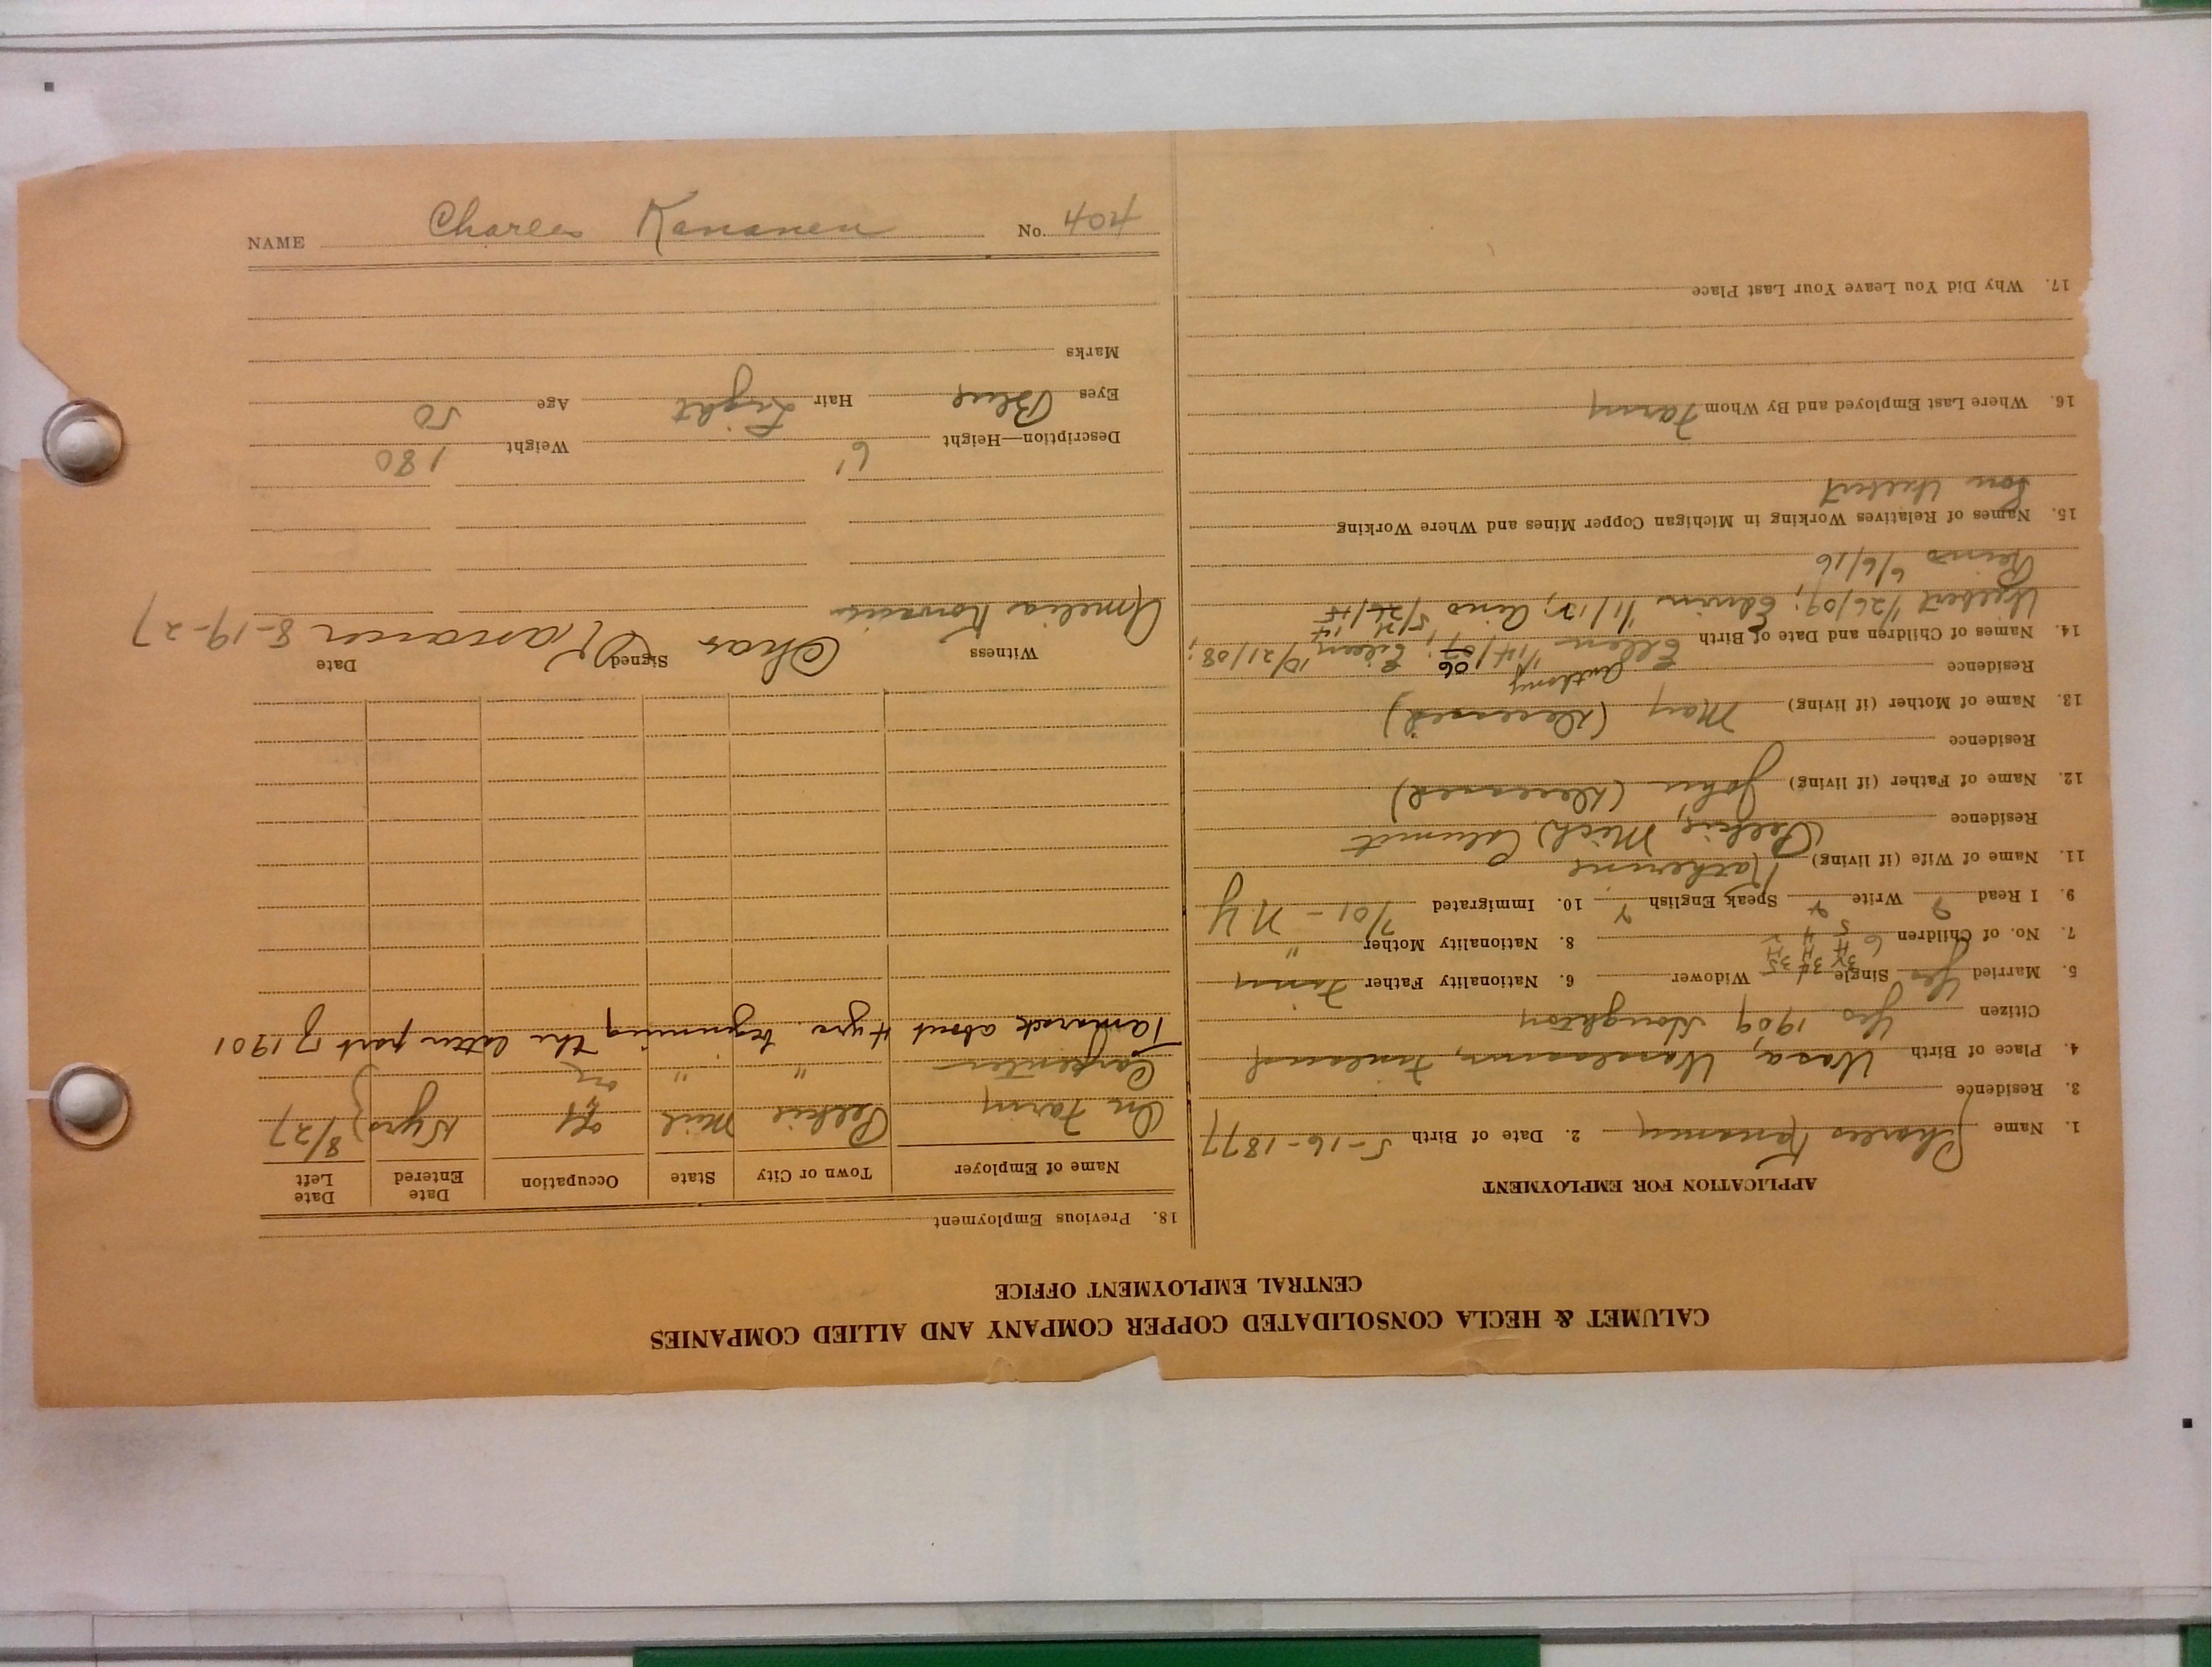 CALUMET & HECLA CONSOLIDATED COPPER COMPANY AND ALLIED COMPANIES
CENTRAL EMPLOYMENT OFFICE
APPLICATION FOR EMPLOYMENT
1. Name Charles Kananen 2. Date of Birth 5-16-1877
3. Residence
4. Place of Birth Wasa, Finland
Citizen Yes 1909 Houghton
5. Married Yes Single Widower 6. Nationality Father Finn
7. No. of Children 6 5 4 8. Nationality Mother "
9. I Read Write Speak English 10. Immigrated 7/01 - N.Y
11. Name of Wife (if living) Katherine
Residence Pelkie, Mich. Calumet
12. Name of Father (if living) John (Deceased)
Residence
13. Name of Mother (if living) Mary (Deceased)
Residence
14. Names of Children and Date of Birth Ellen 1/14/07 06; Eileen, 10/21/08;
1/26/09; Edwin 1/1/13; Aino 5/26/15
Reino 6/6/16
15. Names of Relatives Working in Michigan Copper Mines and Where Working
Son
16. Where Last Employed and By Whom Farm
17. Why Did You Leave Your Last Place
18. Previous Employment
Name of Employer Town or City State Occupation Date Entered Date Left
On Farm Pelkie Mich 15 yrs 8/27
Carpenter " "
Tamarack about 4 yrs. beginning the latter part of 1901
Witness Signed Date
Amelia Chas Kananen 8-19-27
Description—Height 6' Weight 180
Eyes Blue Hair Light Age 50
Marks
NAME Charles Kananen No. 404